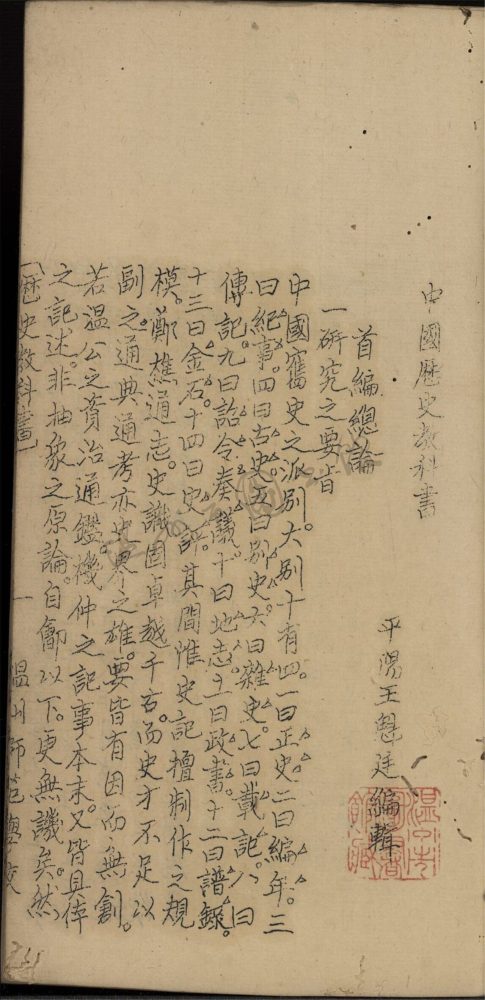 中國歷史教科書
平陽王魁廷編輯
首編總論
一研究之要旨
中國舊史之派別大別十有四。一曰正史二曰編年。三
曰紀事。四曰古史。五曰別史六曰雜史七曰載記八曰
傳記。九曰詔令奏議十曰地志十一曰政書。十二曰譜錄。
十三曰金石。十四曰史評。其間惟史記擅制作之規
模。鄭樵通志。史識固卓越千古。而史才不足以
副之。通典通考亦史界之雄。要皆有因而無創。
若溫公之資治通鑑。機仲之記事本末。又皆具体
之記述。非抽象之原論。自鄶以下。更無譏矣。然
[歷史教科書] 一 溫州師范學校